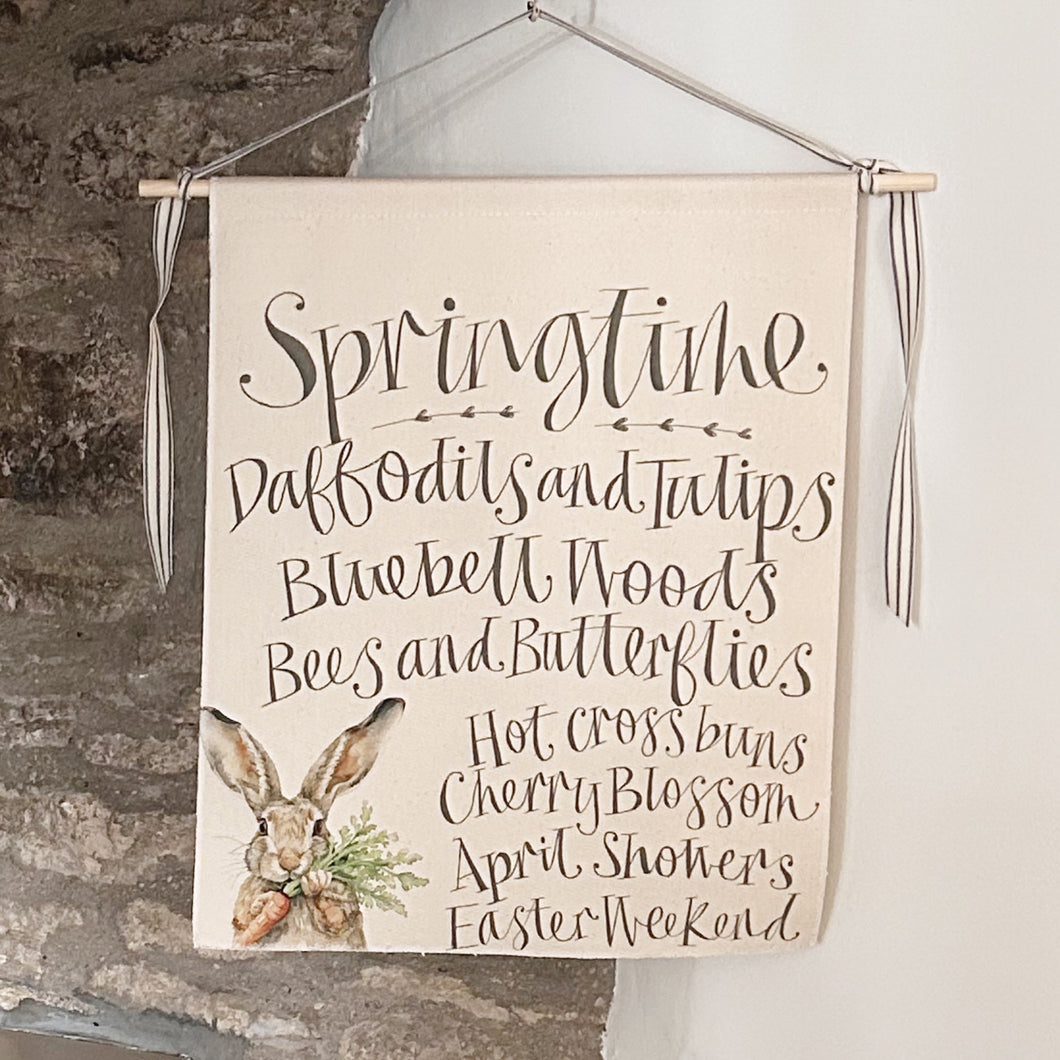 Springtime
Daffodils and Tulips
Bluebell Woods
Bees and Butterflies
Hot cross buns
Cherry Blossom
April Showers
Easter Weekend